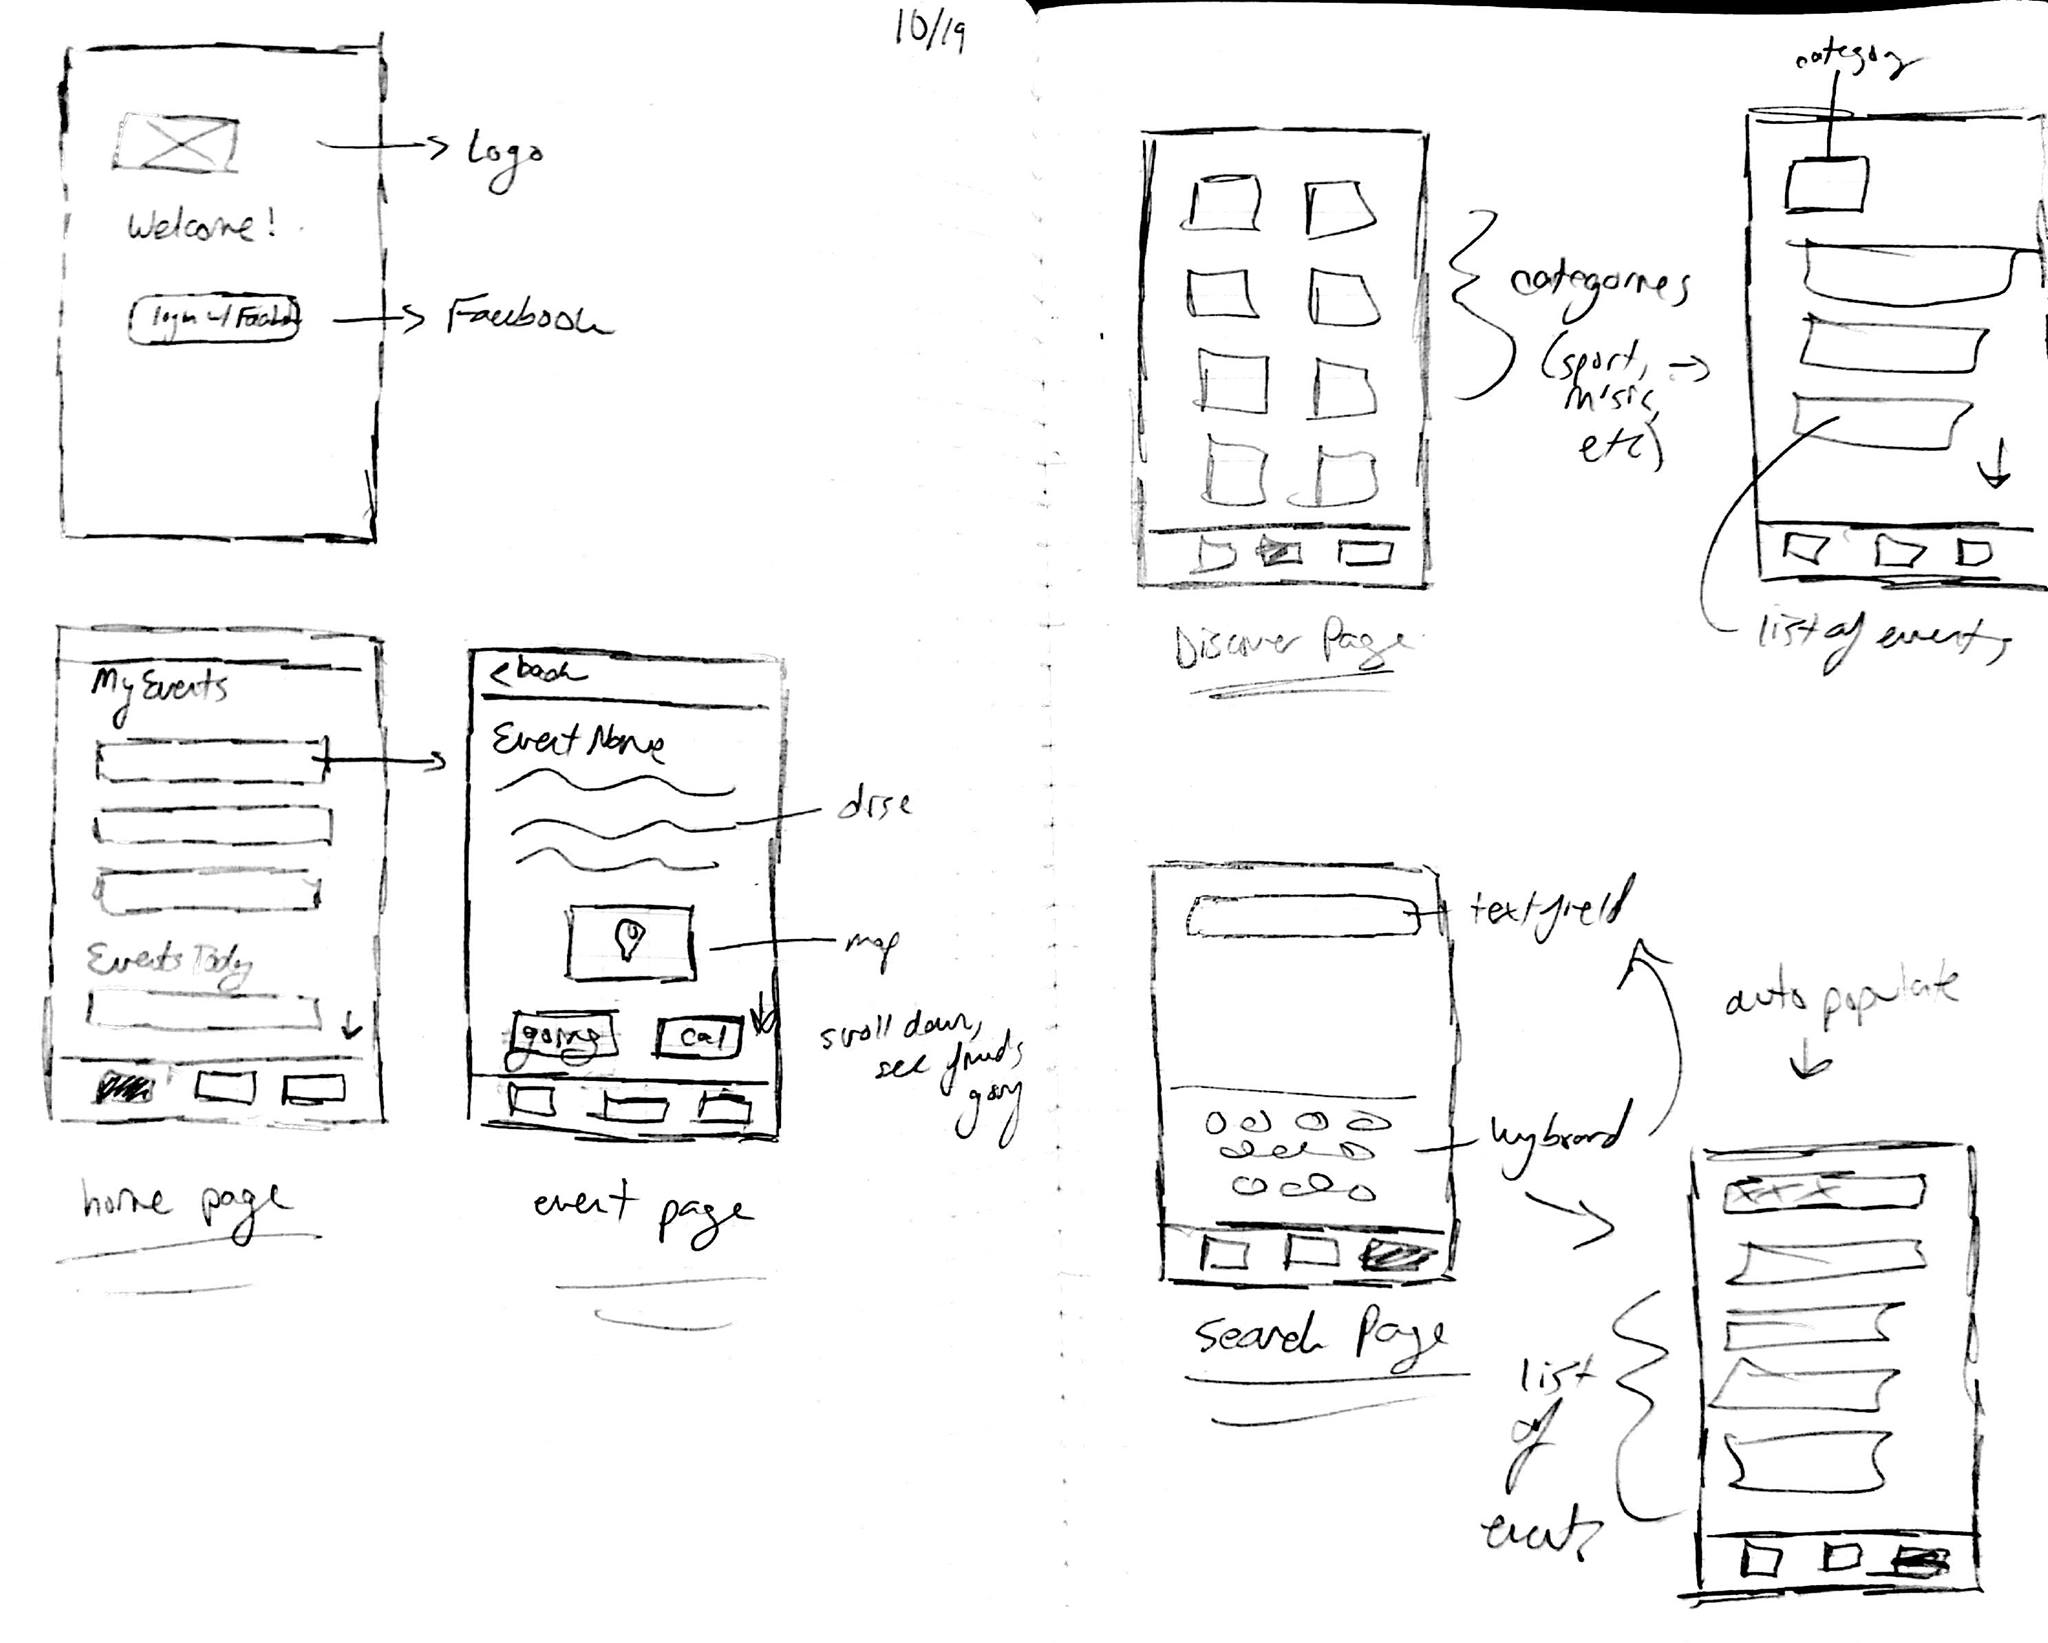 10/19
Logo
Welcome!
login w/ Facebook
Facebook
My Events
Events Today
home page
< back
Event Name
desc
map
going
cal
scroll down,
see friends
going
event page
categories
(sport,
music,
etc)
Discover Page
category
list of events
textfield
keyboard
Search Page
auto populate
xxx
list
of
events